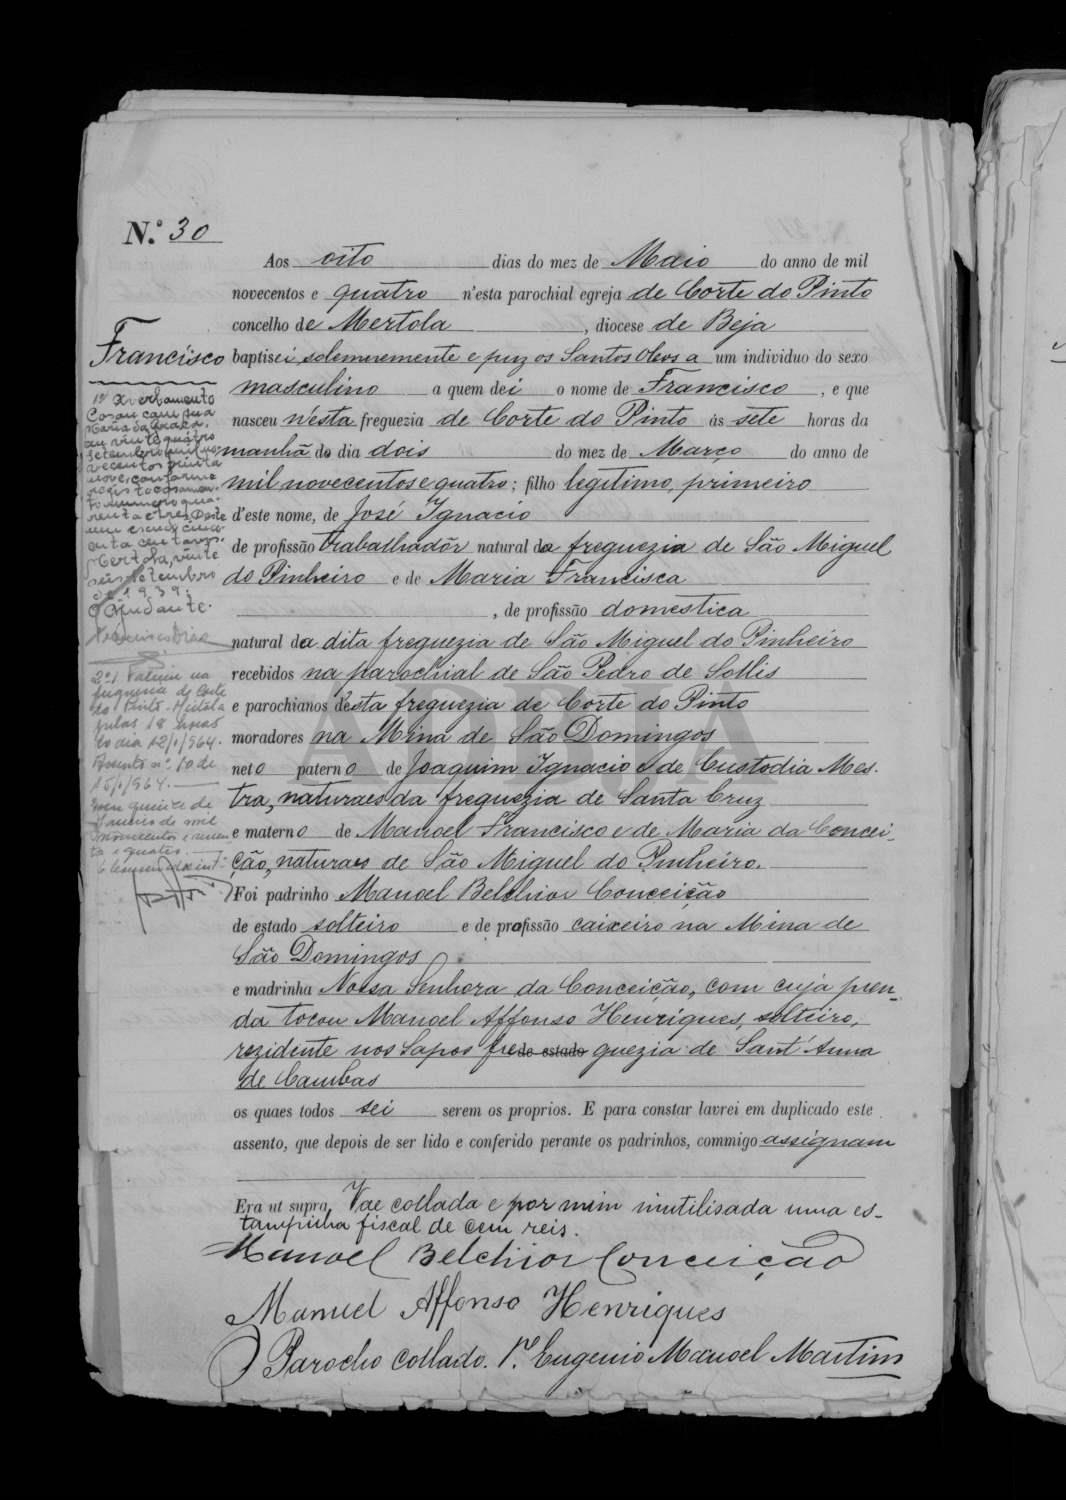 N.º 30
Aos oito dias do mez de Maio do anno de mil
novecentos e quatro n'esta parochial egreja de Corte do Pinto
concelho de Mertola, diocese de Beja
Francisco
baptisei solemnemente e puz os Santos Oleos a um individuo do sexo
masculino a quem dei o nome de Francisco, e que
nasceu n'esta freguezia de Corte do Pinto ás sete horas da
manhã do dia dois do mez de Março do anno de
mil novecentos e quatro; filho legitimo, primeiro
d'este nome, de José Ignacio
de profissão trabalhadôr natural da freguezia de São Miguel
do Pinheiro e de Maria Francisca
, de profissão domestica
natural da dita freguezia de São Miguel do Pinheiro
recebidos na parochial de São Pedro de Sollis
e parochianos d'esta freguezia de Corte do Pinto
moradores na Mina de São Domingos
neto paterno de Joaquim Ignacio e de Custodia Mes-
tra, naturaes da freguezia de Santa Cruz
e materno de Manoel Francisco e de Maria da Concei-
ção, naturaes de São Miguel do Pinheiro.
Foi padrinho Manoel Belchior Conceição
de estado solteiro e de profissão caixeiro na Mina de
São Domingos
e madrinha Nossa Senhora da Conceição, com cuja pren-
da tocou Manoel Affonso Henriques, solteiro,
rezidente nos Sapos fre de estado guezia de Sant'Anna
de Cambas
os quaes todos sei serem os proprios. E para constar lavrei em duplicado este
assento, que depois de ser lido e conferido perante os padrinhos, commigo assignam
Era ut supra. Vae collada e por mim inutilisada uma es-
tampilha fiscal de cem reis.
Manoel Belchior Conceição
Manuel Affonso Henriques
O Parocho collado. P.e Eugenio Manoel Martins
1º Averbamento
Casou com
Maria da Graça,
em vinte quatro
Setembro mil no-
vecentos trinta
nove, conforme
registo casamen-
to numero qua-
renta e tres. Deste
um escudo cinco-
enta centavos.
Mertola, vinte
seis Setembro
de 1939.
O Ajudante.
2º Faleceu na
freguesia de Corte
do Pinto - Mértola
pelas 18 horas
do dia 12/1/964.
Assento nº. 10 de
15/1/964.
Em quinze de
Janeiro de mil
novecentos e sessen-
ta e quatro.
ADBJA